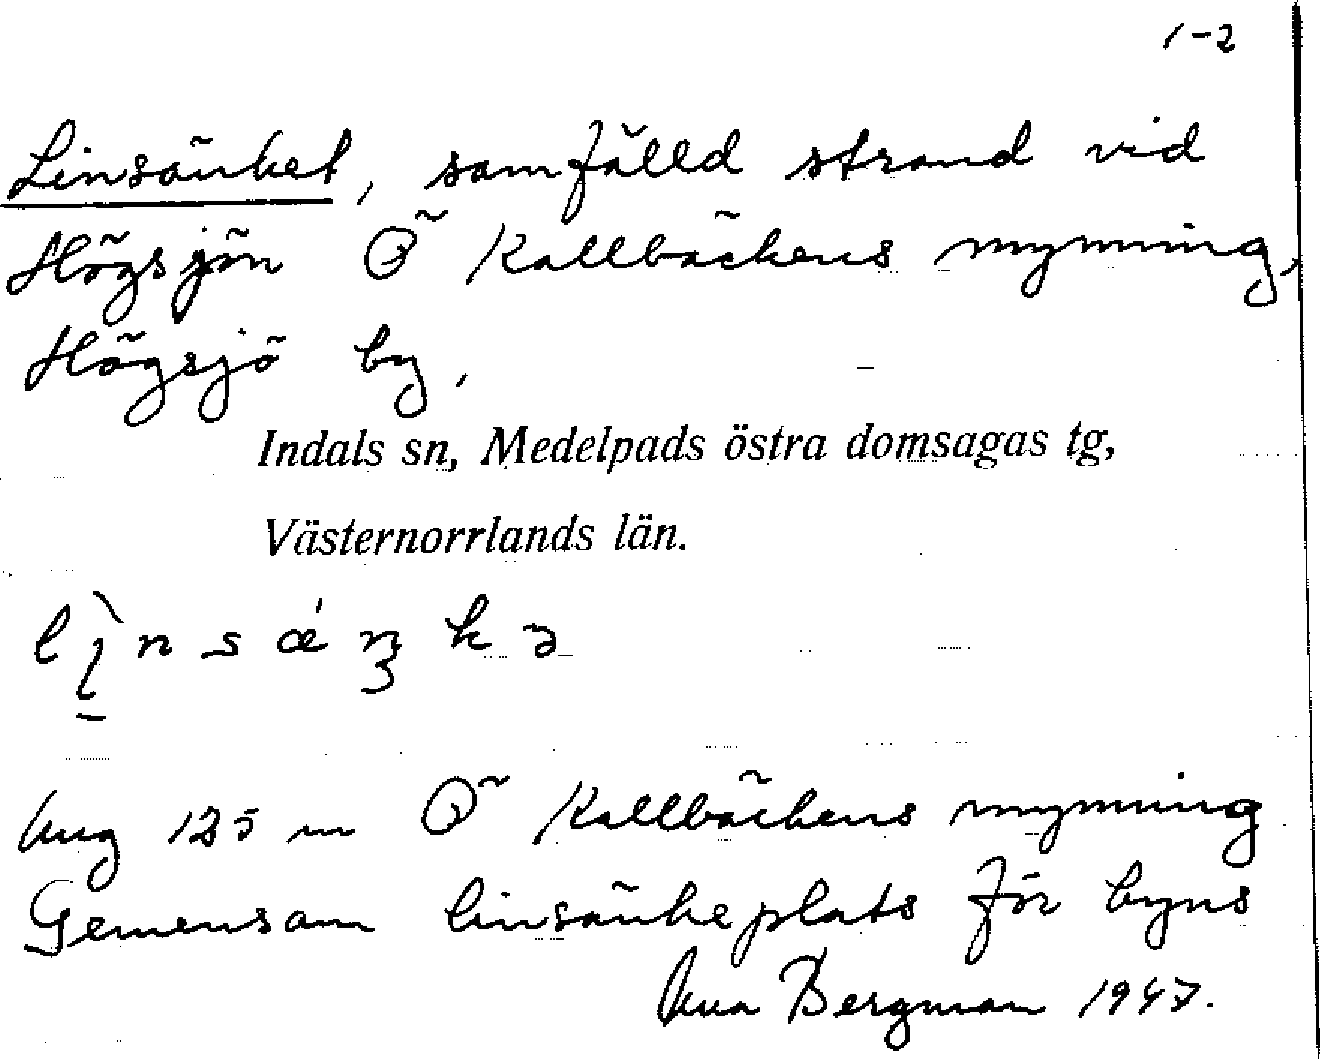 1-2
Linsänket, samfälld strand vid
Högsjön Ö Kallbäckens mynning,
Högsjö by,
Indals sn, Medelpads östra domsagas tg,
Västernorrlands län.
125 m Ö Kallbäckens mynning
Gemensam linsänkeplats för byns
Bergman 1947.